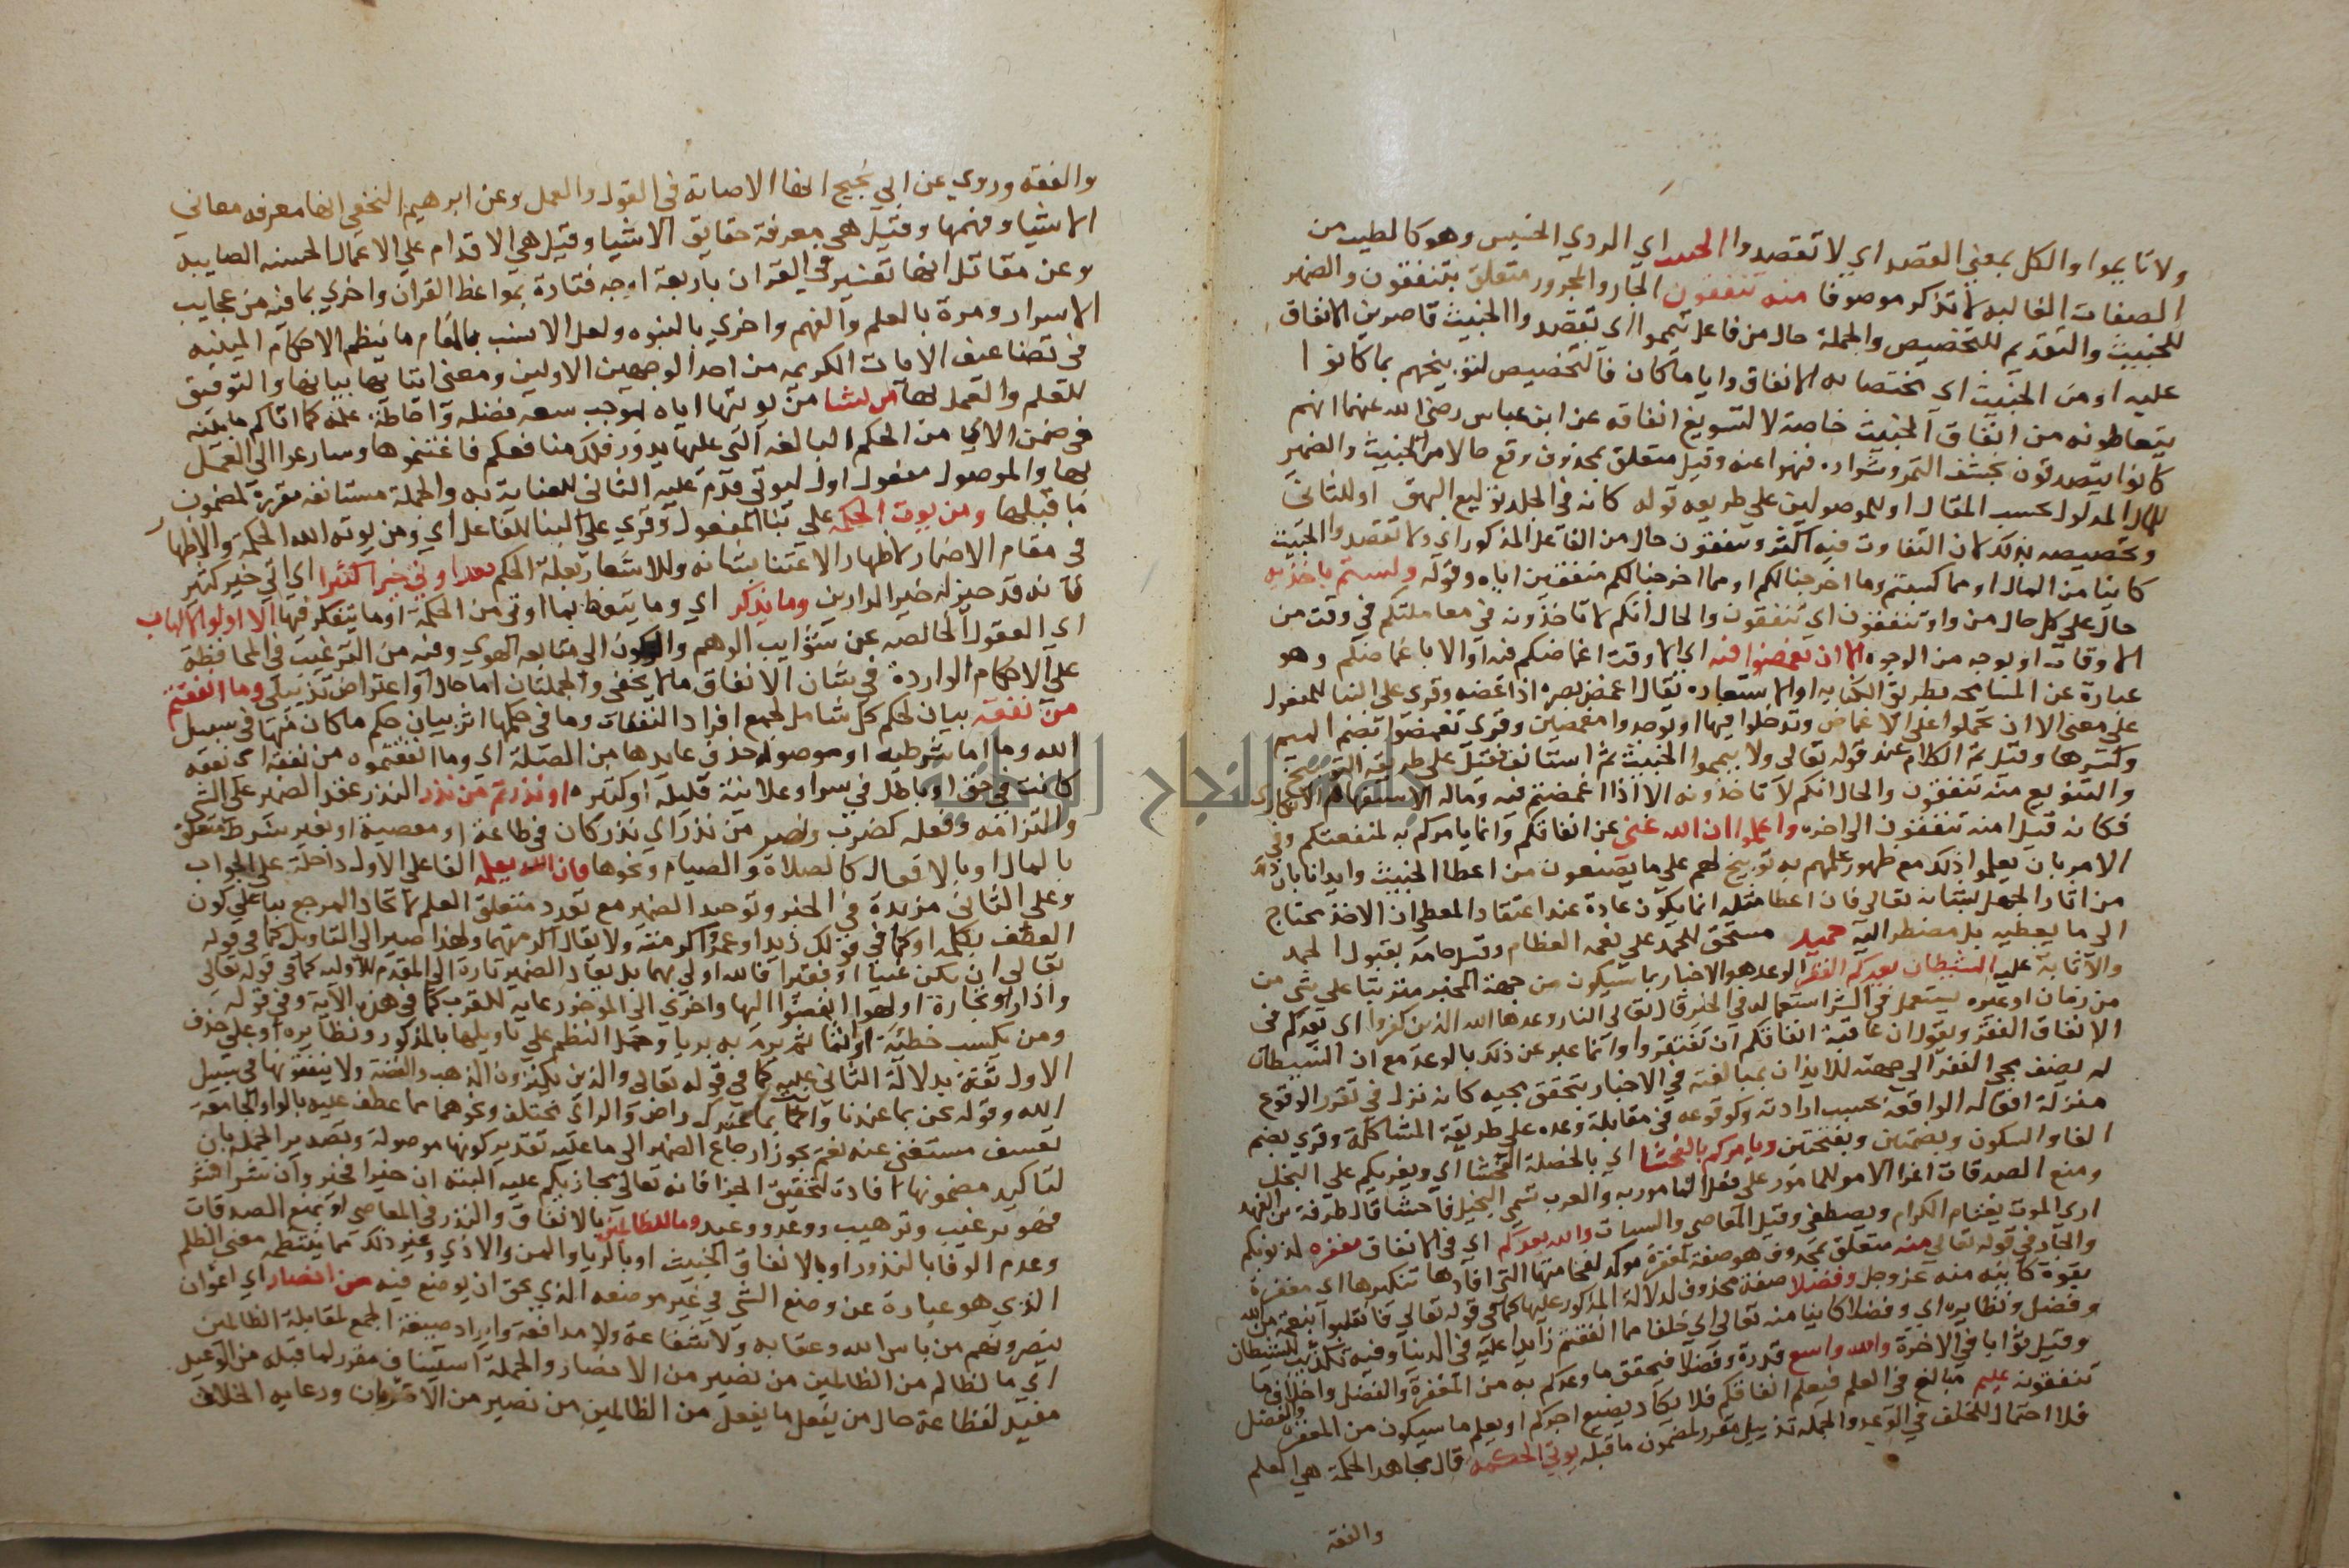 ولا تأيموا والكل بمعني القصد اي لا تقصدوا الخبيث اي الردي الخسيس وهو كالطيب من
الصفات الغالبه لا تذكر موصوفا منه تنفقون الجار والمجرور متعلق بتنفقون والضمير
للخبيث والتقديم للتخصيص والجملة حال من فاعل تيمموا اي تقصدوا الخبيث قاصرين الانفاق
عليه او من الخبيث اي مختصا به الانفاق وايا ما كان فالتخصيص لتوبيخهم بما كانوا
يتعاطونه من انفاق الخبيث خاصة لا لتسويغ انفاقه عن ابن عباس رضي الله عنهما انهم
كانوا يتصدقون بحشف التمر وشراره فنهوا عنه وقيل متعلق بمحذوف وقع حالا من الخبيث والضمير
للمال المدلول بحسب المقال او للموصولين علي طريقه قوله كانه في الجلد توليع البهق او للثاني
وتخصيصه بذلك لان التفاوت فيه اكثر وتنفقون حال من الفاعل المذكور اي ولا تقصدوا الخبيث
كاينا من المال او مما كسبتم وما اخرجنا لكم او مما اخرجنا لكم منفقين اياه وقوله ولستم باخذيه
حال علي كل حال من واو تنفقون اي تنفقون والحال انكم لا تاخذونه في معاملتكم في وقت من
الاوقات او بوجه من الوجوه الا ان تغمضوا فيه اي الا وقت اغماضكم فيه او الا باغماضكم وهو
عبارة عن المسامحه بطريق الكنايه او الاستعاره يقال اغمض بصره اذا غضه وقري علي البنا للمفعول
علي معني الا ان تحملوا علي الاغماض وتدخلوا فيه او توجدوا مغمضين وقري تغمضوا بضم الميم
وكسرها وقيل تم الكلام عند قوله تعالي ولا تيمموا الخبيث ثم استانف فقيل علي طريقه التوبيخ
والتقريع منه تنفقون والحال انكم لا تاخذونه الا اذا اغمضتم فيه وماله الاستفهام الانكاري
فكانه قيل امنه تنفقون الي اخره واعلموا ان الله غني عن انفاقكم وانما يامركم به لمنفعتكم وفي
الامر بان يعلموا ذلك مع ظهور علمهم به توبيخ لهم علي ما يصنعون من اعطا الخبيث وايذانا بان ذلك
من اثار الجهل بشانه تعالي فان اعطا مثله انما يكون عادة عند اعتقاد المعطي ان الاخذ محتاج
الي ما يعطيه بل مضطر اليه حميد مستحق للحمد علي نعمه العظام وقيل حامد بقبول الجيد
والاثابة عليه الشيطان يعدكم الفقر الوعد هو الاخبار بما سيكون من جهة المخبر مترتبا علي شي من
من زمان او غيره يستعمل في الشر استعماله في الخير قال تعالي النار وعدها الله الذين كفروا اي يعدكم في
الانفاق الفقر ويقول ان عاقبة انفاقكم ان تفتقروا وانما عبر عن ذلك بالوعد مع ان الشيطان
لم يضف مجي الفقر الي جهته للايذان بمبالغته في الاخبار بتحقق مجيه كانه نزله في تقرر الوقوع
منزلة افعاله الواقعة بحسب ارادته وكوقوعه في مقابلة وعده علي طريقة المشاكلة وقري بضم
الفا والسكون وبضمتين وبفتحتين ويامركم بالفحشا اي بالخصلة الفحشا اي ويغريكم علي البخل
ومنع الصدقات اغرا الامر للمامور علي فعل المامور به والعرب تسمي البخيل فاحشا قال طرفة بن العبد
اري الموت يعتام الكرام ويصطفي وقيل المعاصي والسيات والله يعدكم اي في الانفاق مغفره لذنوبكم
والجار في قوله تعالي منه متعلق بمحذوف هو صفة لمغفرة موكدة لفخامتها التي افادها تنكيرها اي مغفرة
بقوة كاينة منه عز وجل وفضلا صفة محذوف لدلالة المذكور عليها كما في قوله تعالي فانقلبوا بنعمة من الله
وفضل ونظايره اي وفضلا كاينا منه تعالي اي خلفا مما انفقتم زايدا عليه في الدنيا وفيه تكذيب للشيطان
وقيل ثوابا في الاخرة والله واسع قدرة وفضلا فيحقق ما وعدكم به من المغفرة والفضل واخلاف ما
تنفقونه عليم مبالغ في العلم فيعلم انفاقكم فلا يكاد يضيع اجركم او يعلم ما سيكون من المغفرة والفضل
فلا احتمال للخلف في الوعد والجملة تذييل مقرر لمضمون ما قبله يوتي الحكمه قال مجاهد الحكمة هي العلم
والفقه
والفقه وروي عن ابي نجيح انها الاصابة في القول والعمل وعن ابرهيم النخعي انها معرفه معاني
الاشيا وفهمها وقيل هي معرفة حقايق الاشيا وقيل هي الاقدام علي الاعمال الحسنه الصايبه
وعن مقاتل انها تفسر في القران باربعة اوجه فتارة بمواعظ القران واخري بما فيه من عجايب
الاسرار ومرة بالعلم والفهم واخري بالنبوه ولعل الانسب بالمقام ما ينظم الاحكام المبينه
في تضاعيف الايات الكريمه من احد الوجهين الاولين ومعني ايتايها بيانها والتوفيق
للعلم والعمل بها من يشا من يوتيها اياه بموجب سعه فضله واحاطة علمه كما اتاكم ما بينه
في ضمن الاي من الحكم البالغه التي عليها يدور فلك منافعكم فاغتنموها وسارعوا الي العمل
بها والموصول مفعول اول ليوتي قدم عليه الثاني للعناية به والجملة مستانفه مقررة لمضمون
ما قبلها ومن يوت الحكمة علي بنا المفعول وقري علي البنا للفاعل اي ومن يوته الله الحكمة والاظهار
في مقام الاضمار لاظهار الاعتنا بشانه وللاشعار بعلة الحكم فقد اوتي خيرا كثيرا اي اي خير كثير
فانه قد حيز له خير الدارين وما يذكر اي وما يتعظ بما اوتي من الحكمة او ما يتفكر فيها الا اولوا الالباب
اي العقول الخالصه عن شوايب الوهم والركون الي متابعه الهوي وفيه من الترغيب في المحافظة
علي الاحكام الواردة في شان الانفاق ما لا يخفي والجملتان اما حال او اعتراض تذييلي وما انفقتم
من نفقه بيان لحكم كلي شامل لجميع افراد النفقات وما في حكمها اثر بيان حكم ما كان منها في سبيل
الله وما اما شرطيه او موصوله حذف عايدها من الصلة اي وما انفقتموه من نفقة اي نفقه
كانت في حق او باطل في سر او علانية قليلة او كثيره او نذرتم من نذر النذر عقد الضمير علي الشي
والتزامه وفعله كضرب ونصر من نذر اي نذر كان في طاعة او معصية او بغير شرط متعلق
بالمال او بالافعال كالصلاة والصيام ونحوها فان الله يعلمه الفا علي الاول داخلة علي الجواب
وعلي الثاني مزيدة في الخبر وتوحيد الضمير مع تعدد متعلق العلم لاتحاد المرجع بنا علي كون
العطف بكلمة او كما في قولك زيد او عمرو اكرمته ولا يقال اكرمتهما ولهذا صير الي التاويل كما في قوله
تعالي ان يكن غنيا او فقيرا فالله اولي بهما بل يعاد الضمير تارة الي المقدم للاوليه كما في قوله تعالي
واذا راو تجارة او لهوا انفضوا اليها واخري الي الموخر رعايه للقرب كما في هذه الاية وفي قوله
ومن يكسب خطيئة او اثما ثم يرم به بريا وحمل النظم علي تاويلها بالمذكور ونظايره او علي حذف
الاول ثقة بدلالة الثاني عليه كما في قوله تعالي والذين يكنزون الذهب والفضة ولا ينفقونها في سبيل
الله وقوله نحن بما عندنا وانت بما عندك راض والراي مختلف ونحوهما مما عطف عليه بالواو الجامعة
تعسف مستغني عنه نعم يجوز ارجاع الضمير الي ما علي تقدير كونها موصولة وتصدير الجملة بان
لتاكيد مضمونها افادة لتحقيق الجزا فانه تعالي يجازيكم عليه البته ان خيرا فخير وان شرا فشر
فهو ترغيب وترهيب ووعد ووعيد وما للظالمين بالانفاق والنذر في المعاصي او بمنع الصدقات
وعدم الوفا بالنذور او بالانفاق الخبيث او بالريا والمن والاذي وغير ذلك مما ينتظمه معني الظلم
الذي هو عبارة عن وضع الشي في غير موضعه الذي يحق ان يوضع فيه من انصار اي اعوان
ينصرونهم من باس الله وعقابه ولا شفاعة ولا مدافعة وايراد صيغة الجمع لمقابلة الظالمين
اي ما لظالم من الظالمين من نصير من الانصار والجملة استيناف مقرر لما قبله من الوعيد
مفيد لفظاعة حال من يفعل ما يفعل من الظالمين من نصير من الاقربان ورعايه الخلاف